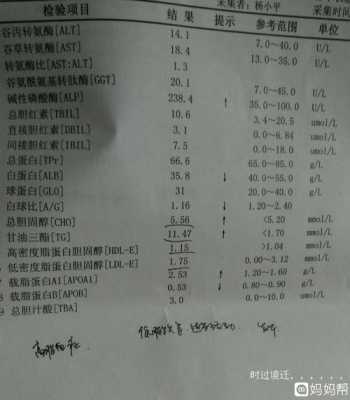 采集者:杨小平 采集时间
检验项目 结果 提示 参考范围 单位
谷丙转氨酶[ALT] 14.1 7.0~40.0 U/L
谷草转氨酶[AST] 18.4 13.0~35.0 U/L
转氨酶比[AST:ALT] 1.3
谷氨酰氨基转肽酶[GGT] 20.1 7.0~45.0 U/L
碱性磷酸酶[ALP] 238.4 ↑ 35.0~100.0 U/L
总胆红素[TBIL] 10.6 3.4~20.5 umol/L
直接胆红素[DBIL] 3.1 0.0~6.84 umol/L
间接胆红素[IBIL] 7.5 0.0~18.0 umol/L
总蛋白[TPr] 66.6 65.0~85.0 g/L
白蛋白[ALB] 35.8 ↓ 40.0~55.0 g/L
球蛋白[GLO] 31 20.0~40.0 g/L
白球比[A/G] 1.16 ↓ 1.20~2.40
总胆固醇[CHO] 5.56 ↑ <5.20 mmol/L
甘油三酯[TG] 11.47 ↑ <1.70 mmol/L
高密度脂蛋白胆固醇[HDL-E] 1.15 >1.04 mmol/L
低密度脂蛋白胆固醇[LDL-E] 1.75 0.00~3.12 mmol/L
7 载脂蛋白A1[APOA1] 2.53 ↑ 1.20~1.60 g/L
8 载脂蛋白B[APOB] 0.53 ↓ 0.80~0.90 g/L
9 总胆汁酸[TBA] 3.0 0.0~10.0 umol/L
时过境迁......
妈妈帮